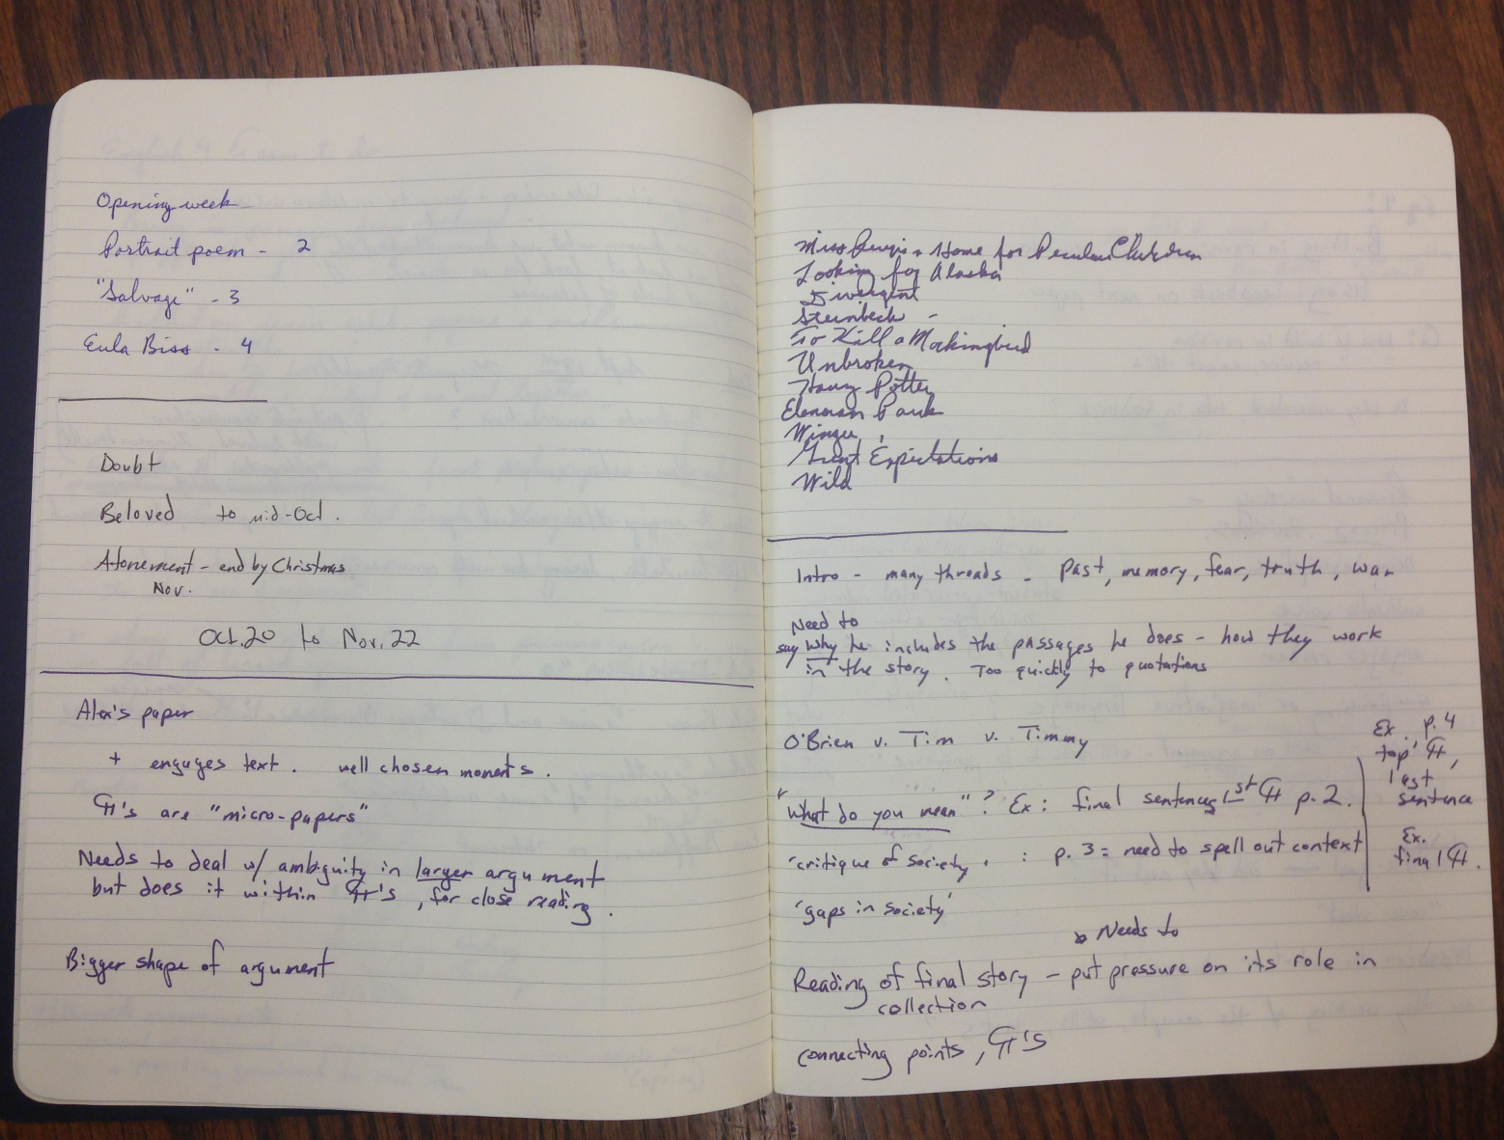 Opening week
Portrait poem - 2
"Salvage" - 3
Eula Biss - 4
Doubt
Beloved to mid-Oct.
Atonement - end by Christmas
Nov.
Oct. 20 to Nov. 22
Alex's paper
+ engages text. well chosen moments.
¶'s are "micro-papers"
Needs to deal w/ ambiguity in larger argument
but does it within ¶'s, for close reading.
Bigger shape of argument
Miss Home for Peculiar Children
Looking for Alaska
Divergent
Steinbeck -
To Kill a Mockingbird
Unbroken
Harry Potter
Eleanor Park
Winger
Great Expectations
Wild
Intro - many threads - past, memory, fear, truth, war
Need to
say why he includes the passages he does - how they work
in the story. Too quickly to quotations
O'Brien v. Tim v. Timmy
"What do you mean"? Ex: final sentences 1st ¶ p. 2.
'critique of society' : p. 3 = need to spell out context
'gaps in society'
Ex. p. 4
top ¶,
last
sentence
Ex.
final ¶.
Needs to
Reading of final story - put pressure on its role in
collection
connecting points, ¶'s